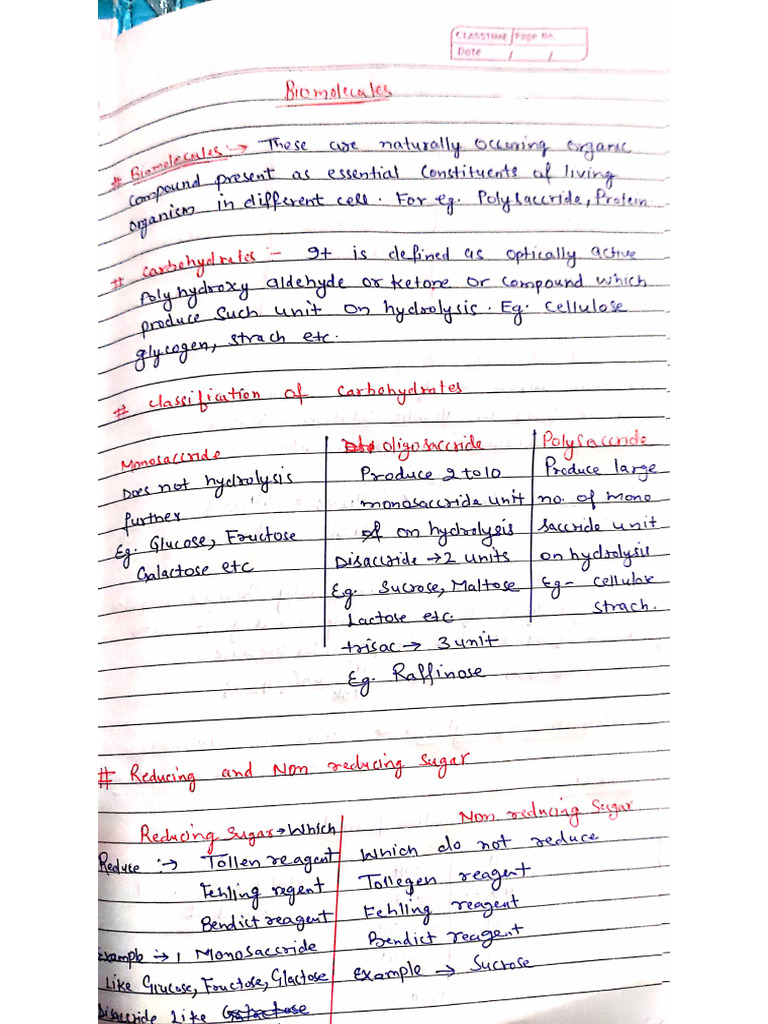 CLASSTIME Page No.
Date / /
Biomolecules
# Biomolecules :→ These are naturally occuring organic
compound present as essential constituents of living
organism in different cell. For eg. Polysaccride, Protein
# Carbohydrates :- It is defined as optically active
Polyhydroxy aldehyde or ketone or compound which
produce such unit on hydrolysis. Eg. cellulose
glycogen, strach etc.
# classification of carbohydrates
Monosaccride
Does not hydrolysis
further
Eg. Glucose, Fructose
Galactose etc
oligosaccride
Produce 2 to 10
monosaccride unit
on hydrolysis
Disaccride → 2 units
Eg. Sucrose, Maltose
Lactose etc.
trisac → 3 unit
Eg. Raffinose
Polysaccride
Produce large
no. of mono
saccride unit
on hydrolysis
Eg- cellulose
strach.
# Reducing and Non reducing sugar
Reducing sugar → which
Reduce :→ Tollen reagent
Fehling regent
Bendict reagent
Example → 1 Monosaccride
Like Glucose, Fructose, Glactose
Disaccride Like
Non reducing Sugar
which do not reduce
Tollegen reagent
Fehling reagent
Bendict reagent
Example → Sucrose